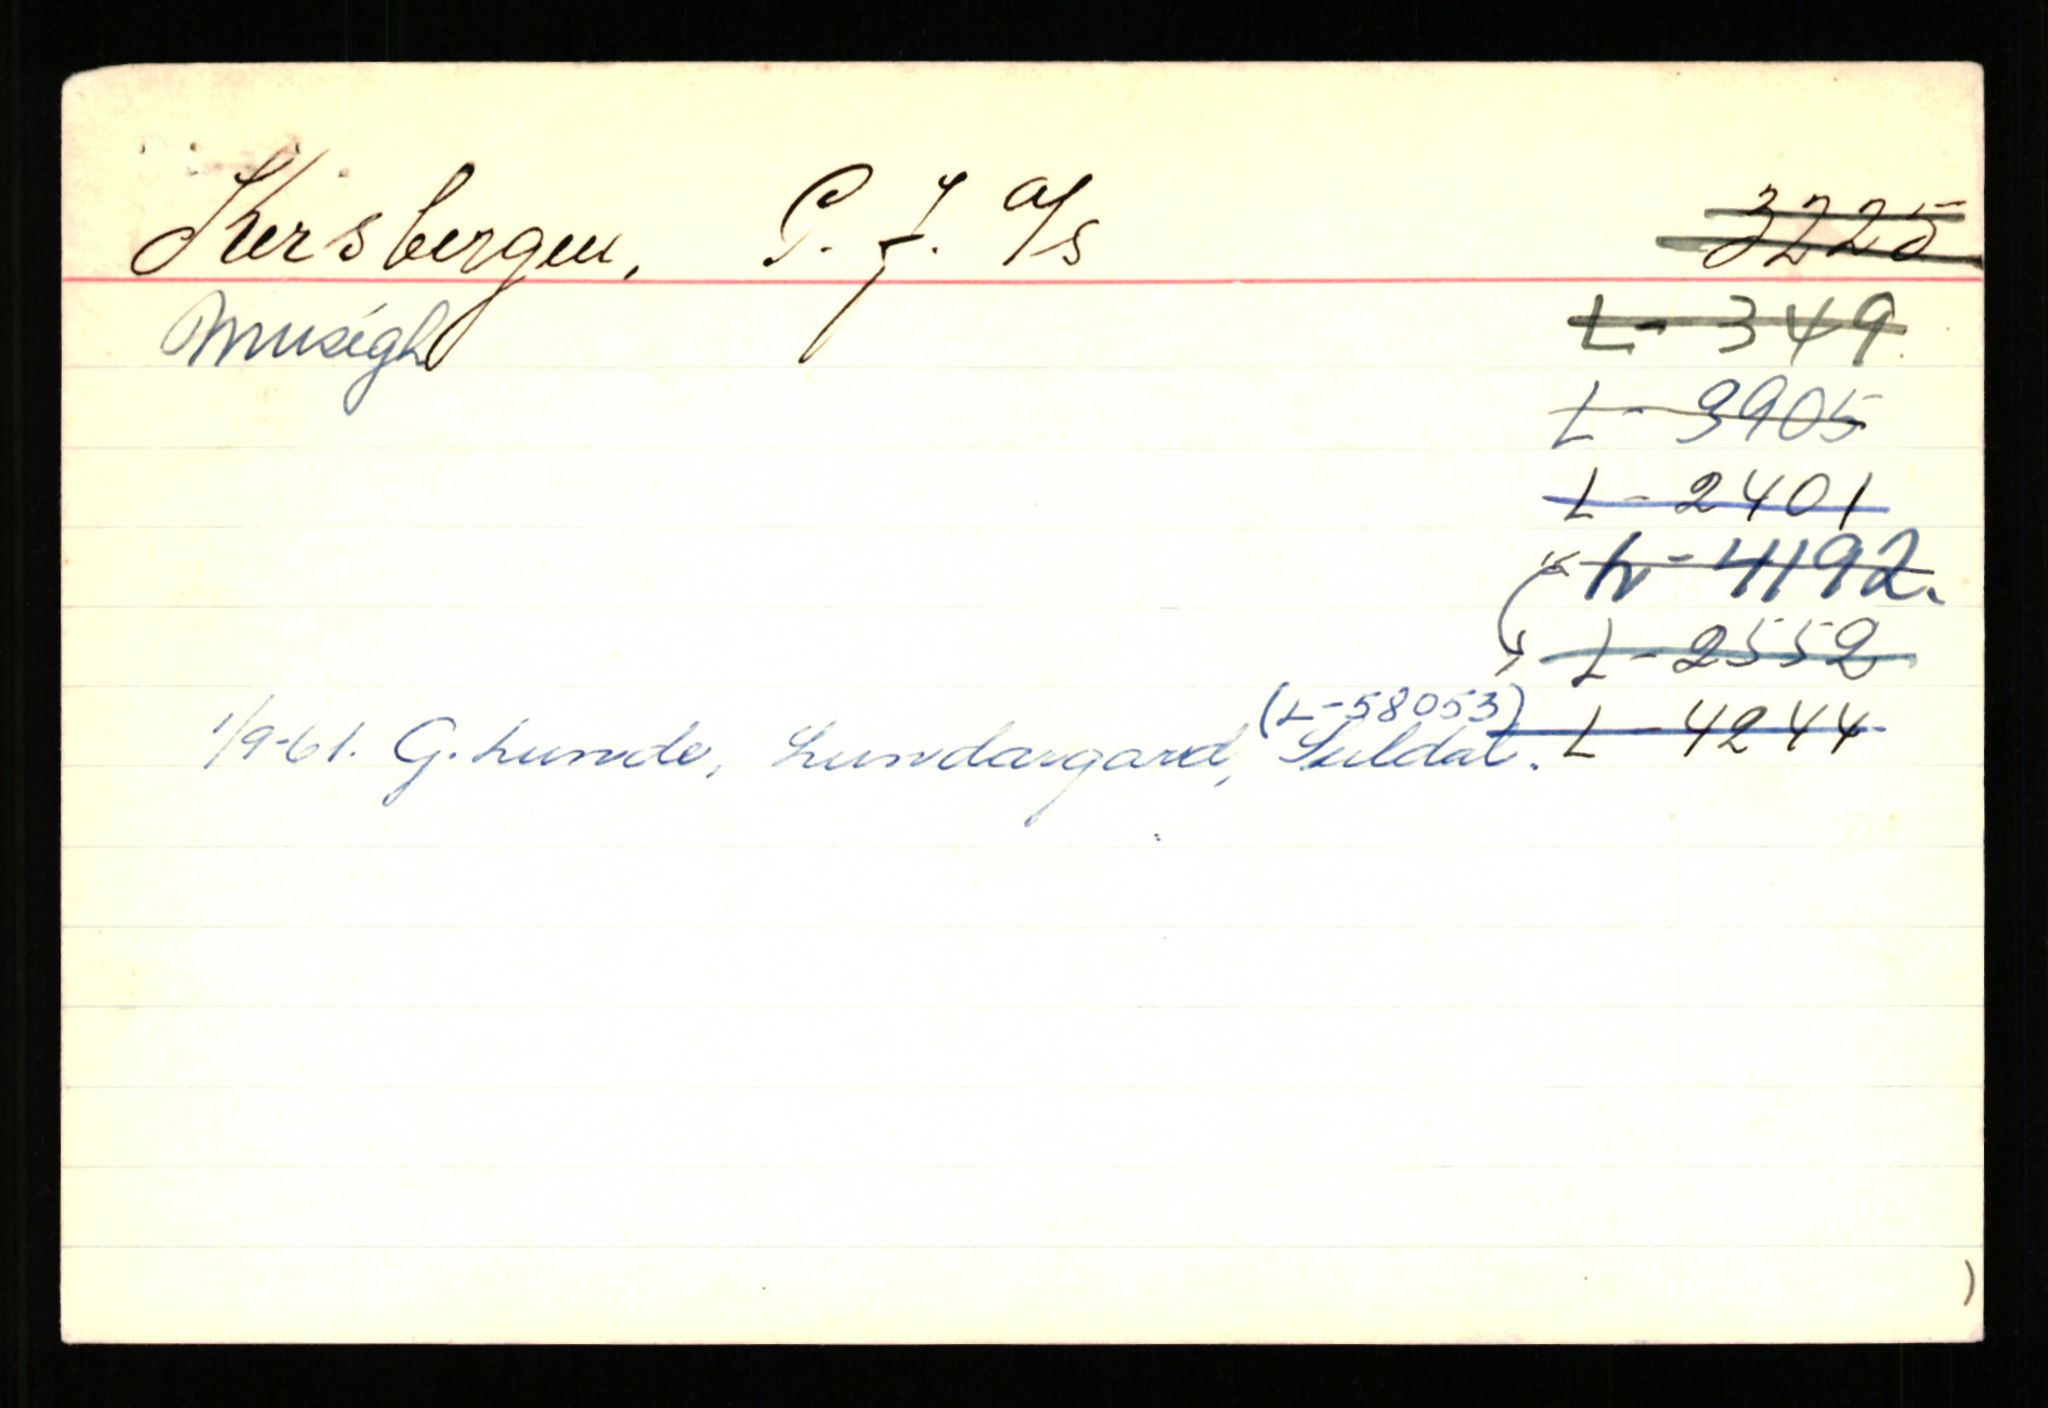 Kersbergen, P. J. A/S 3225
Musègh L - 349
L - 3905
L - 2401
L - 4192.
L - 2552
(L-58053) L - 4244
1/9-61. G. Lunde, Lundargard, Suldal.